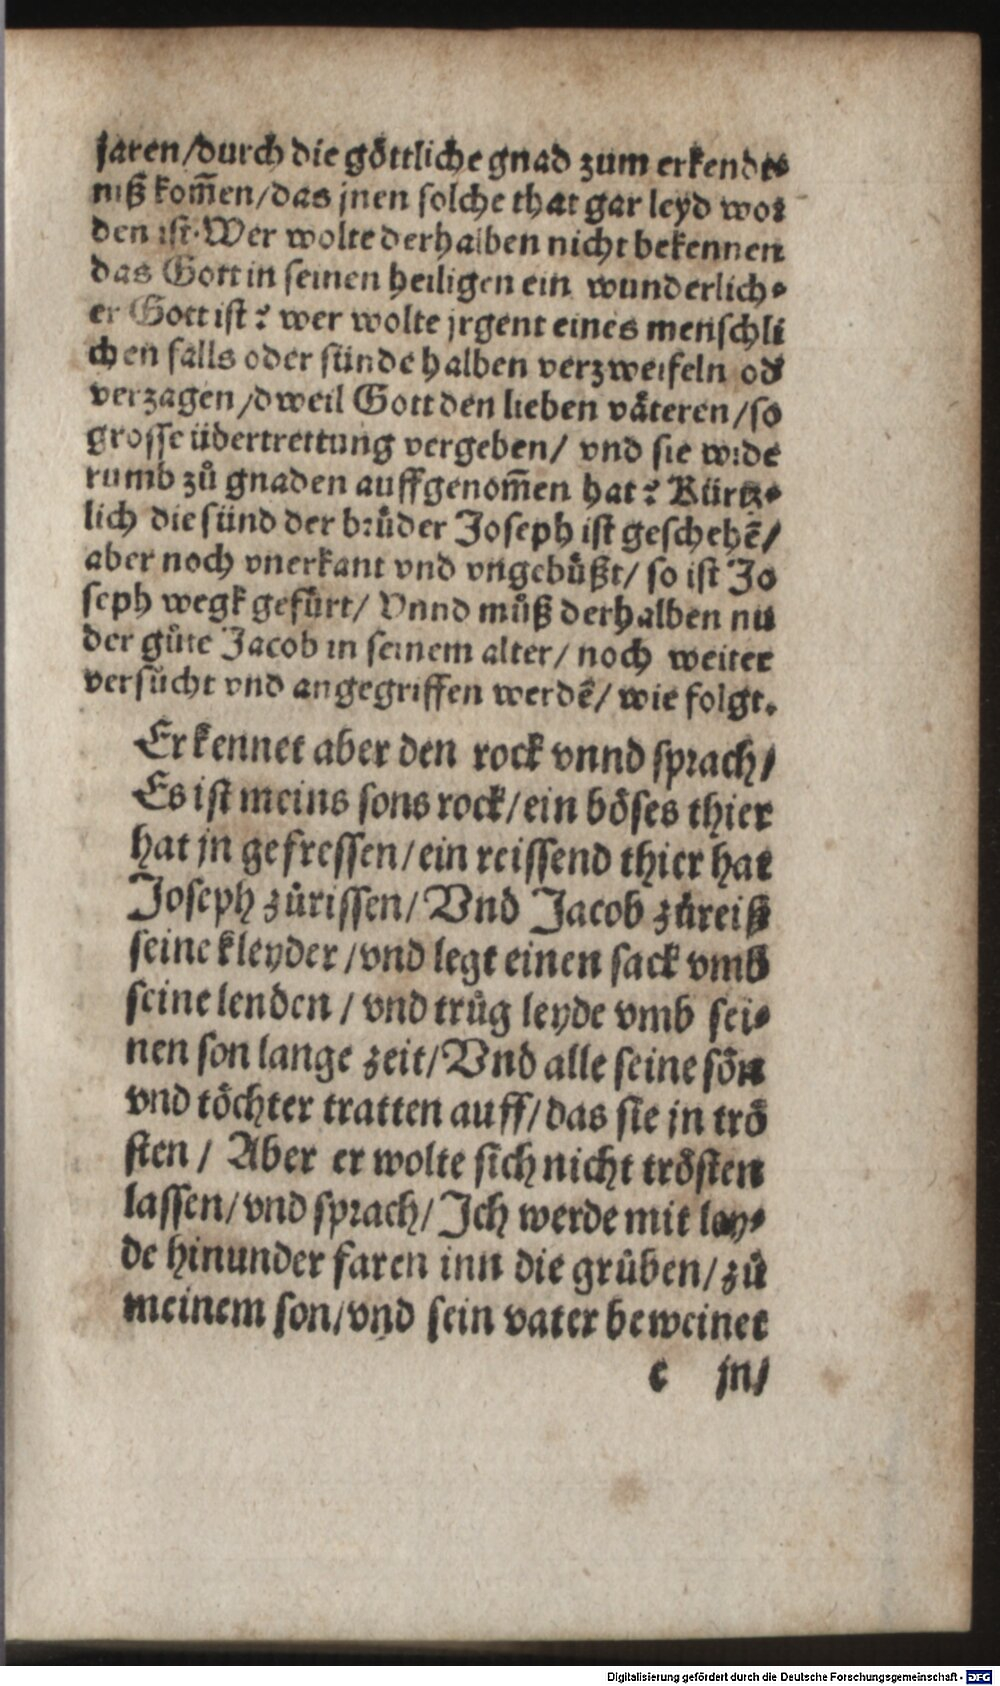 jaren/durch die göttliche gnad zum erkendt⸗
niß kom̃en/das jnen solche that gar leyd wor
den ist. Wer wolte derhalben nicht bekennen
das Gott in seinen heiligen ein wunderlich⸗
er Gott ist? wer wolte jrgent eines menschli
chen falls oder sünde halben verzweifeln od̕
verzagen/dweil Gott den lieben väteren/so
grosse übertrettung vergeben/ vnd sie wide
rumb zů gnaden auffgenom̃en hat? Kürtz⸗
lich die sünd der brůder Joseph ist geschehẽ/
aber noch vnerkant vnd vngebůßt/ so ist Jo
seph wegk gefürt/ Vnnd můß derhalben nu
der gůte Jacob in seinem alter/ noch weiter
versůcht vnd angegriffen werdẽ/ wie folgt.
Er kennet aber den rock vnnd sprach/
Es ist meins sons rock/ein böses thier
hat jn gefressen/ein reissend thier hat
Joseph zůrissen/ Vnd Jacob zůreiß
seine kleyder/vnd legt einen sack vmb
seine lenden/ vnd trůg leyde vmb sei⸗
nen son lange zeit/Vnd alle seine sön
vnd töchter tratten auff/das sie jn trö
sten/ Aber er wolte sich nicht trösten
lassen/vnd sprach/ Ich werde mit ley⸗
de hinunder faren inn die grůben/zů
meinem son/vnd sein vater beweinet
c jn/
Digitalisierung gefördert durch die Deutsche Forschungsgemeinschaft - DFG